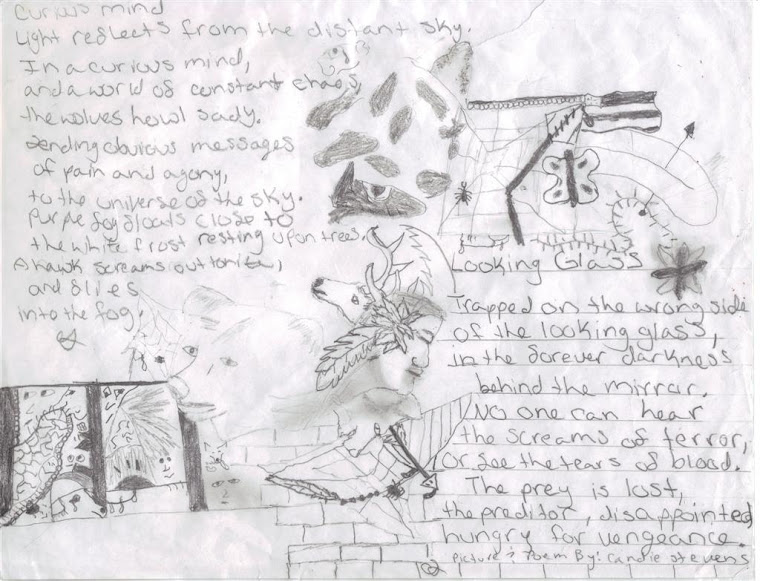 Curious mind
Light reflects from the distant sky.
In a curious mind,
and a world of constant chaos,
the wolves howl sady.
Sending obvious messages
of pain and agony,
to the universe of the sky.
Purple fog floats close to
the white frost resting upon trees.
A hawk screams out to me,
and flies
into the fog.
Looking Glass
Trapped on the wrong side
of the looking glass,
in the forever darkness
behind the mirrar.
No one can hear
the screams of terror,
or see the tears of blood.
The prey is lost,
the preditor, disappointed
hungry for vengeance.
Picture & Poem By: Candie Stevens